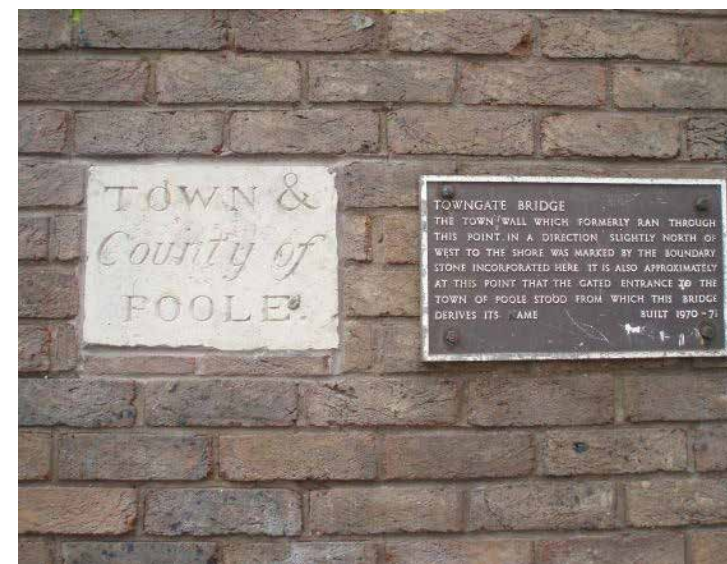 TOWN &
County of
POOLE.
TOWNGATE BRIDGE
THE TOWN WALL WHICH FORMERLY RAN THROUGH
THIS POINT IN A DIRECTION SLIGHTLY NORTH OF
WEST TO THE SHORE WAS MARKED BY THE BOUNDARY
STONE INCORPORATED HERE IT IS ALSO APPROXIMATELY
AT THIS POINT THAT THE GATED ENTRANCE TO THE
TOWN OF POOLE STOOD FROM WHICH THIS BRIDGE
DERIVES ITS NAME BUILT 1970-71